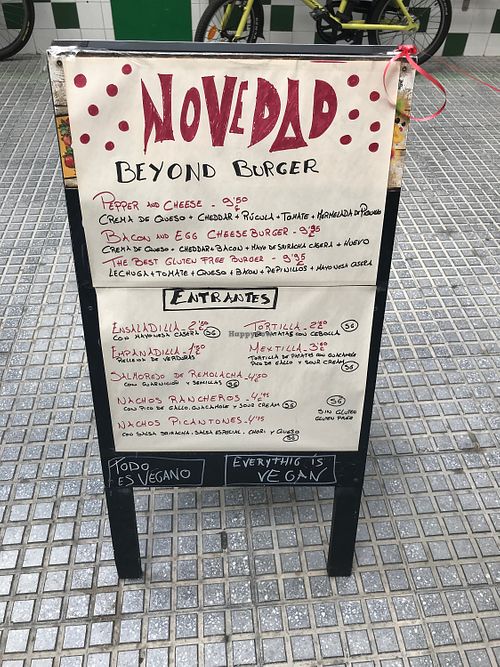 NOVEDAD
BEYOND BURGER
PEPPER AND CHEESE - 9'50 €
CREMA DE QUESO + CHEDDAR + RÚCULA + TOMATE + MERMELADA DE PIMIENTO
BACON AND EGG CHEESE BURGER - 9'95
CREMA DE QUESO + CHEDDAR + BACON + MAYO DE SIRACHA CASERA + HUEVO
THE BEST GLUTEN FREE BURGER - 9'95
LECHUGA + TOMATE + QUESO + BACON + PEPINILLOS + MAYONESA CASERA
ENTRANTES
ENSALADILLA - 2'80
CON MAYONESA CASERA SG
EMPANADILLA - 1'80
RELLENOS DE VERDURAS
SALMOREJO DE REMOLACHA - 4'50
CON GUARNICIÓN Y SEMILLAS SG
NACHOS RANCHEROS - 4'95
CON PICO DE GALLO, GUACAMOLE Y SOUR CREAM SG
NACHOS PICANTONES - 4'95
CON SALSA SRIRACHA, SALSA ESPECIAL, CHORI Y QUESO
SG
TORTILLA - 2'80 SG
DE PATATAS CON CEBOLLA
MEXTILLA - 3'80
TORTILLA DE PATATAS CON GUACAMOLE
PICO DE GALLO Y SOUR CREAM
SG
SG
SIN GLUTEN
GLUTEN FREE
TODO
ES VEGANO
EVERYTHIG IS
VEGAN